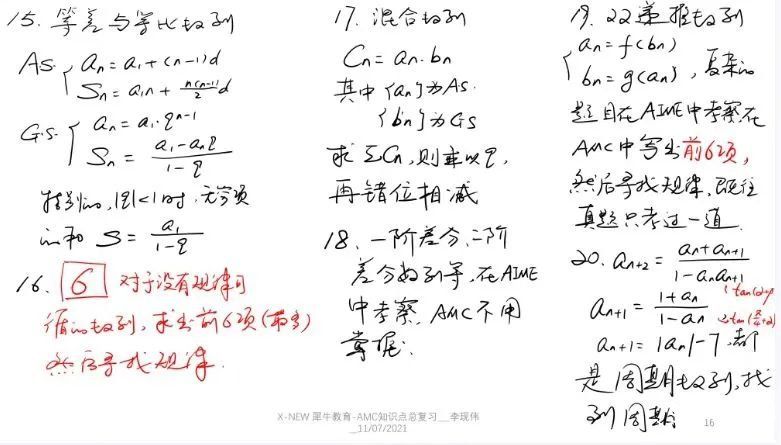 15. 等差与等比数列
AS. { an = a1 + (n-1)d
Sn = a1n + n(n-1)/2 d
G.S. { an = a1·q^(n-1)
Sn = (a1 - anq)/(1 - q)
特别的, |q|<1时, 无穷项
的和 S = a1/(1-q)
16. 6 对于没有规律可
循的数列, 求出前6项(最多)
然后寻找规律.
17. 混合数列
Cn = an·bn
其中{an}为AS.
{bn}为GS
求ΣCn, 则乘以q,
再错位相减
18. 一阶差分, 二阶
差分数列等, 在AIME
中考察, AMC不用
掌握.
19. 双递推数列
{ an = f(bn)
bn = g(an) , 复杂的
题目在AIME中考察, 在
AMC中写出前6项,
然后寻找规律, 既往
真题只考过一道.
20. an+2 = (an + an+1)/(1 - an an+1)
an+1 = (1 + an)/(1 - an)
an+1 = |an| - 7, 都
是周期数列, 找
到周期
X-NEW 犀牛教育-AMC知识点总复习__李现伟
_11/07/2021
16